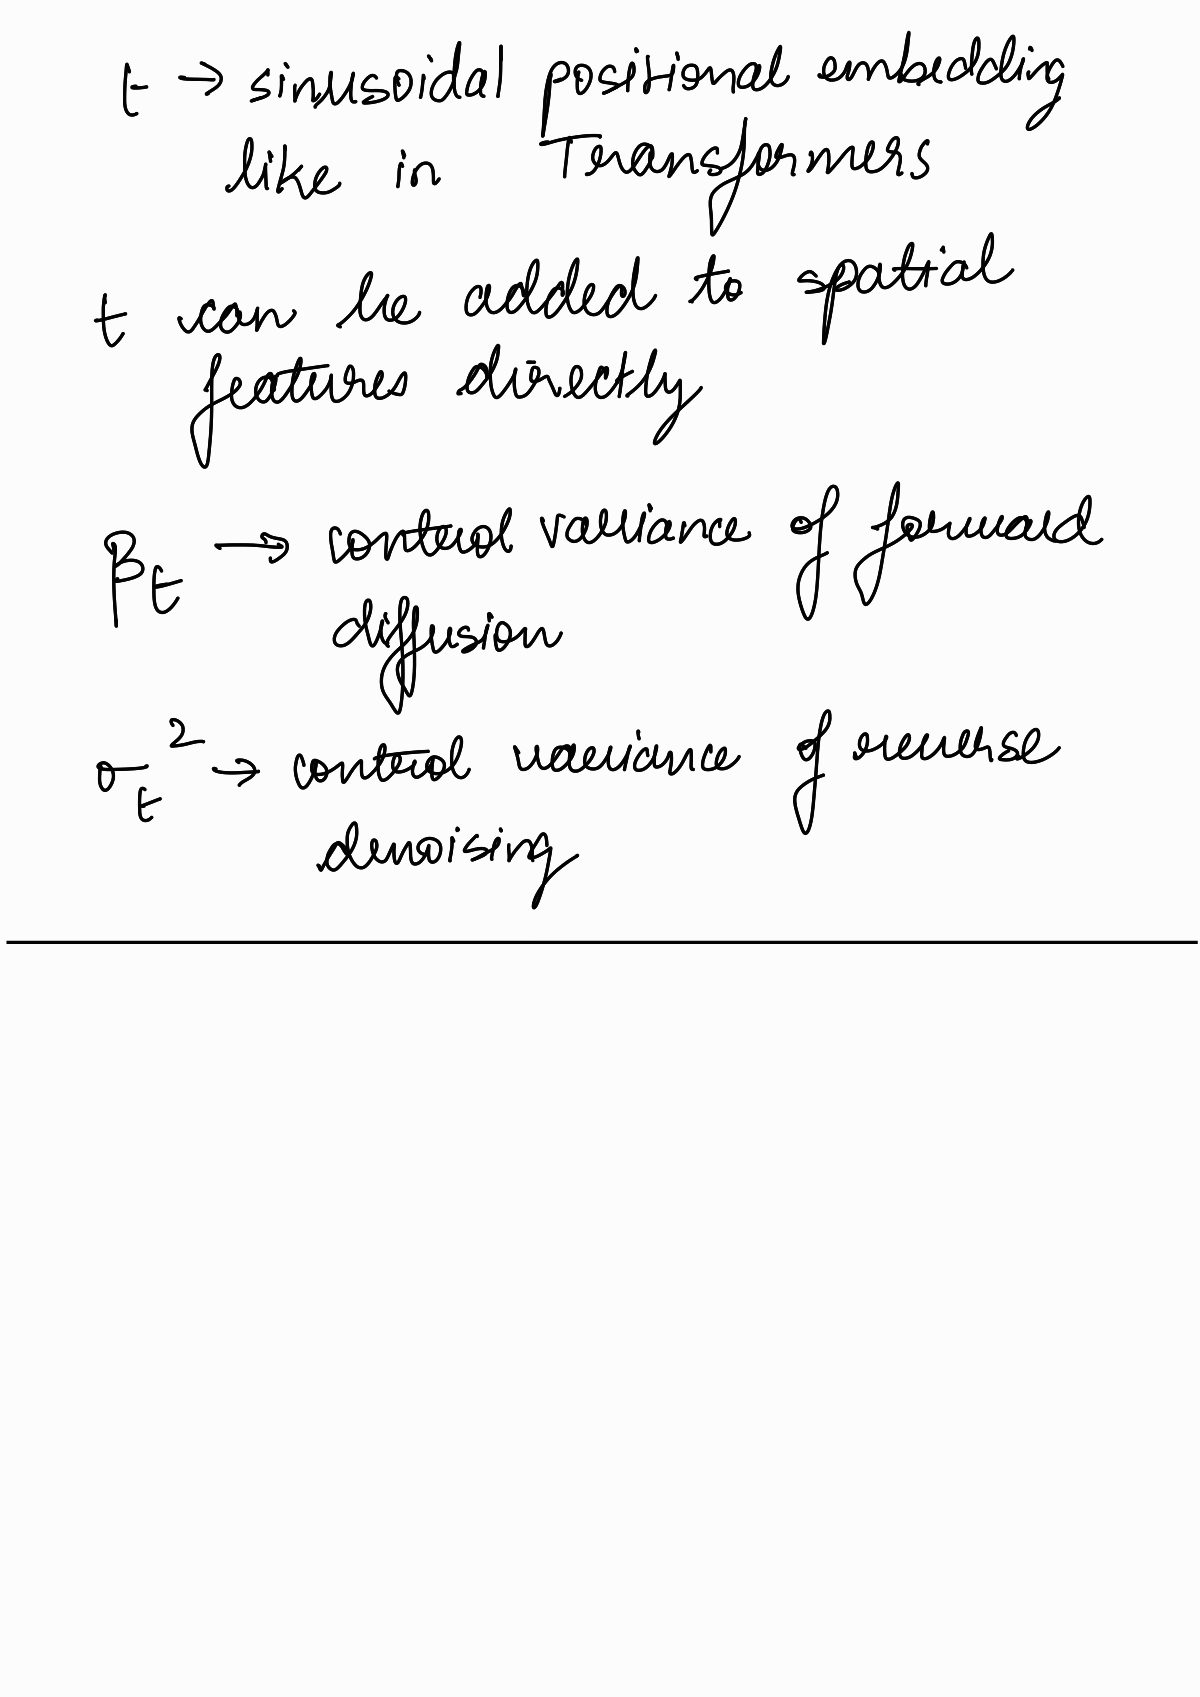 t → sinusoidal positional embedding
like in Transformers
t can be added to spatial
features directly
β_t → control variance of forward
diffusion
σ_t² → control variance of reverse
denoising